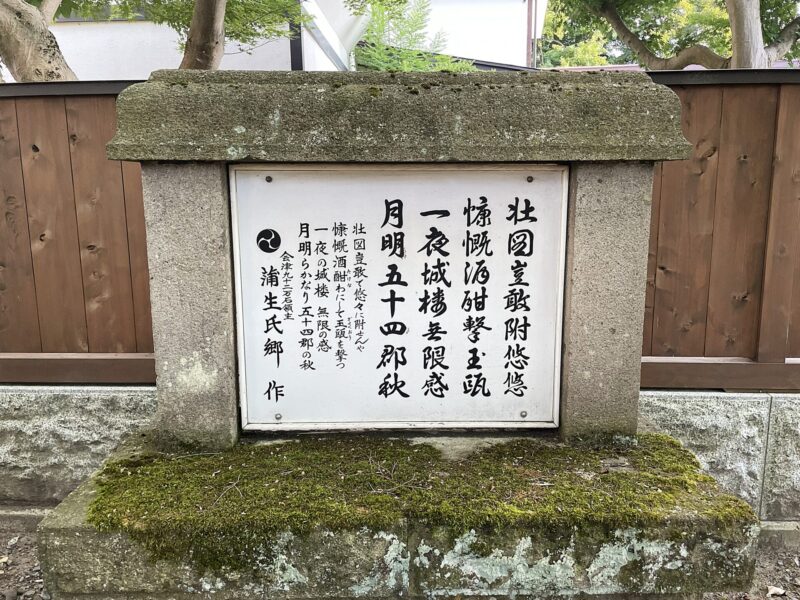 壮図豈敢附悠悠
慷慨酒酣撃玉甌
一夜城楼無限感
月明五十四郡秋
壮図豈敢て悠々に附せんや
慷慨酒酣わにして玉甌を撃つ
一夜の城楼 無限の感
月明らかなり 五十四郡の秋
会津九十二万石領主
蒲生氏郷 作